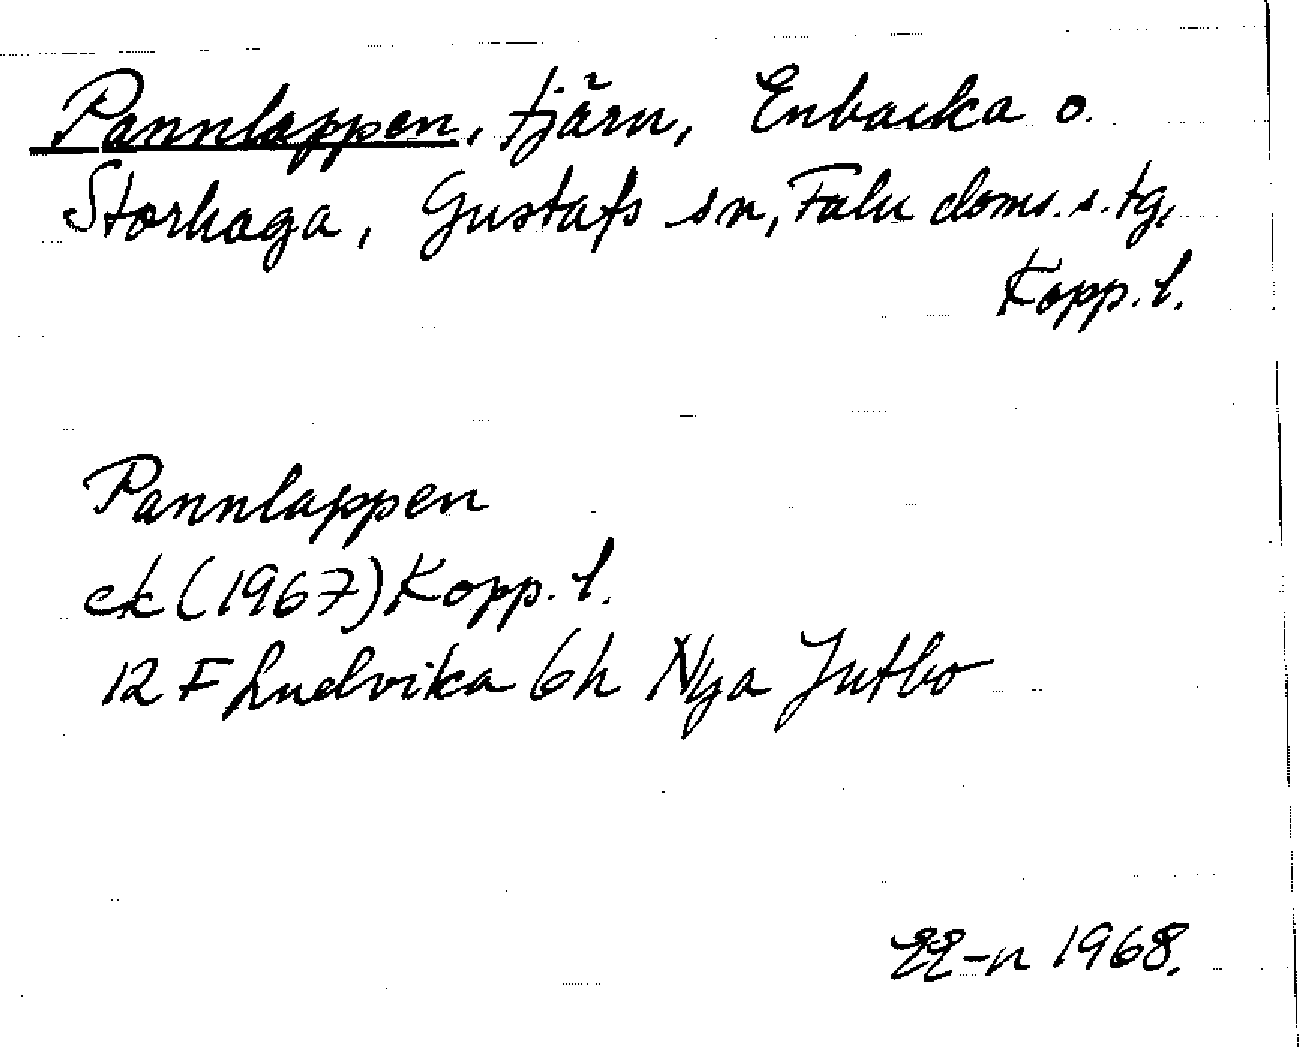 Pannlappen, tjärn, Enbacka o.
Storhaga, Gustafs sn, Falu doms. s. tg,
Kopp. l.
Pannlappen
ek (1967) Kopp. l.
12 F Ludvika 6h Nya Jutbo
EE-n 1968.